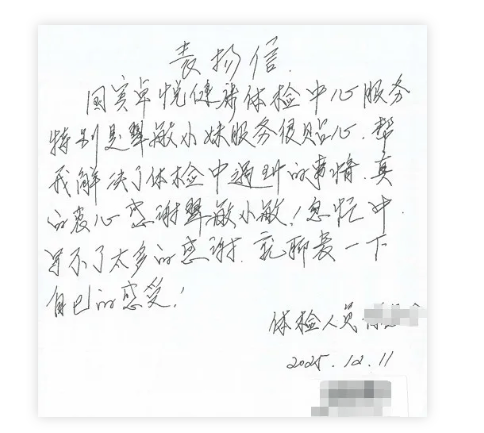 表扬信.
国宾卓悦健康体检中心服务
特别是翠敏小妹服务很贴心.帮
我解决了体检中遇到的事情.真
的衷心感谢翠敏小敏!急忙中.
写不了太多的感谢.就聊表一下
自己的感受!
体检人员
2025.12.11